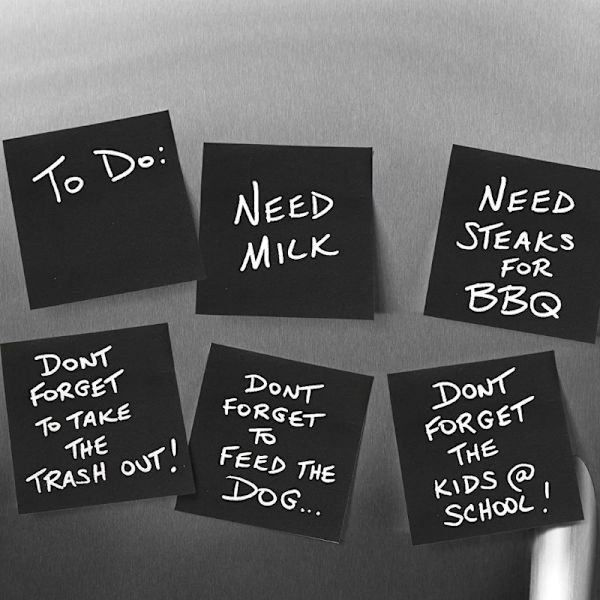 To Do:
NEED
MILK
NEED
STEAKS
FOR
BBQ
DONT
FORGET
TO TAKE
THE
TRASH OUT!
DONT
FORGET
TO
FEED THE
DOG...
DONT
FORGET
THE
KIDS @
SCHOOL!